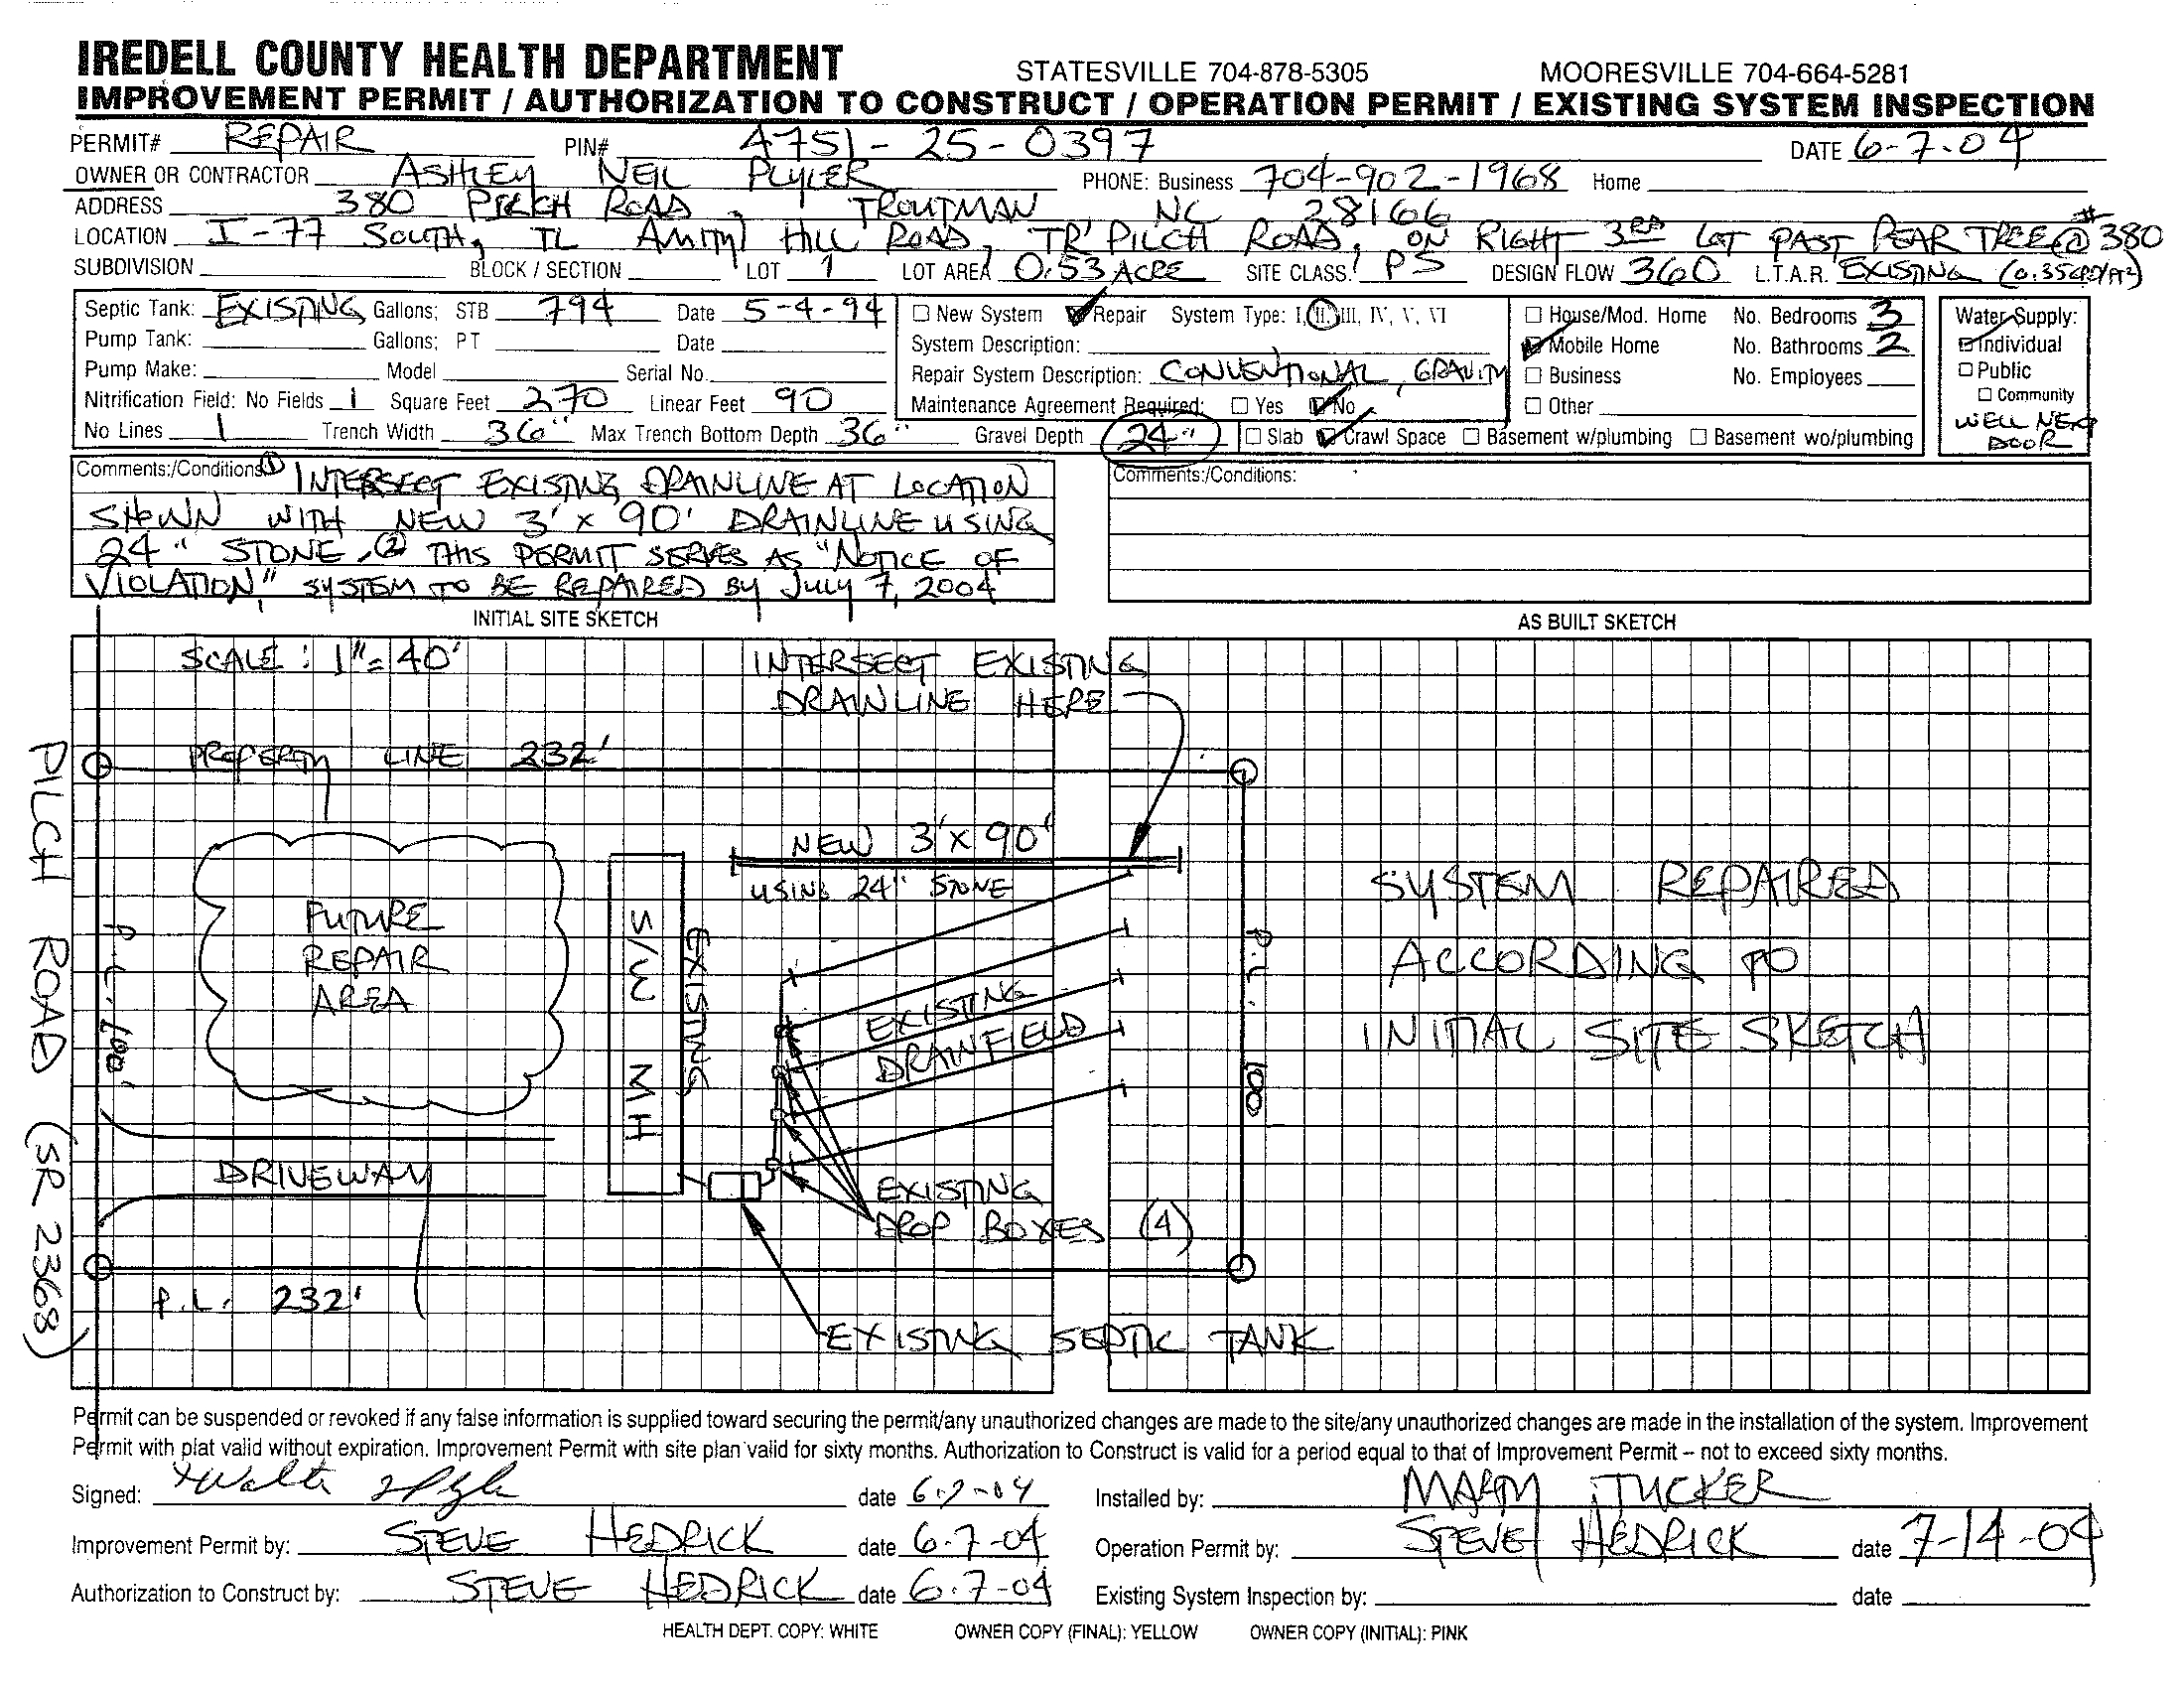 IREDELL COUNTY HEALTH DEPARTMENT
STATESVILLE 704-878-5305 MOORESVILLE 704-664-5281
IMPROVEMENT PERMIT / AUTHORIZATION TO CONSTRUCT / OPERATION PERMIT / EXISTING SYSTEM INSPECTION
PERMIT# REPAIR PIN# 4751-25-0397 DATE 6-7-04
OWNER OR CONTRACTOR ASHLEY NEIL PLYLER PHONE: Business 704-902-1968 Home
ADDRESS 380 PILCH ROAD, TROUTMAN NC 28166
LOCATION I-77 SOUTH, TL AMITY HILL ROAD, TR PILCH ROAD, ON RIGHT 3RD LOT PAST PEAR TREE @ #380
SUBDIVISION BLOCK / SECTION LOT 1 LOT AREA 0.53 ACRE SITE CLASS. PS DESIGN FLOW 360 L.T.A.R. EXISTING (0.35GPD/FT²)
Septic Tank: EXISTING Gallons; STB 794 Date 5-4-94
Pump Tank: Gallons; PT Date
Pump Make: Model Serial No.
Nitrification Field: No Fields 1 Square Feet 270 Linear Feet 90
No Lines 1 Trench Width 36" Max Trench Bottom Depth 36" Gravel Depth 24"
New System Repair System Type: I, II, III, IV, V, VI
System Description:
Repair System Description: CONVENTIONAL, GRAVITY
Maintenance Agreement Required: Yes No
Slab Crawl Space Basement w/plumbing Basement wo/plumbing
House/Mod. Home No. Bedrooms 3
Mobile Home No. Bathrooms 2
Business No. Employees
Other
Water Supply:
Individual
Public
Community
WELL NEXT
DOOR
Comments:/Conditions: ① INTERSECT EXISTING DRAINLINE AT LOCATION
SHOWN WITH NEW 3' x 90' DRAINLINE USING
24" STONE. ② THIS PERMIT SERVES AS "NOTICE OF
VIOLATION", SYSTEM TO BE REPAIRED BY JULY 7, 2004
Comments:/Conditions:
INITIAL SITE SKETCH
AS BUILT SKETCH
SCALE: 1"=40'
INTERSECT EXISTING
DRAINLINE HERE
PROPERTY LINE 232'
NEW 3'x90'
USING 24" STONE
FUTURE
REPAIR
AREA
EXISTING
S/W MH
EXISTING
DRAINFIELD
P.L. 100'
P.L. 100
PILCH ROAD (SR 2368)
DRIVEWAY
EXISTING
DROP BOXES (4)
P.L. 232'
EXISTING SEPTIC TANK
SYSTEM REPAIRED
ACCORDING TO
INITIAL SITE SKETCH
Permit can be suspended or revoked if any false information is supplied toward securing the permit/any unauthorized changes are made to the site/any unauthorized changes are made in the installation of the system. Improvement
Permit with plat valid without expiration. Improvement Permit with site plan valid for sixty months. Authorization to Construct is valid for a period equal to that of Improvement Permit – not to exceed sixty months.
Signed: date 6-7-04 Installed by: MARTY TUCKER
Improvement Permit by: STEVE HEDRICK date 6-7-04 Operation Permit by: STEVE HEDRICK date 7-14-04
Authorization to Construct by: STEVE HEDRICK date 6-7-04 Existing System Inspection by: date
HEALTH DEPT. COPY: WHITE OWNER COPY (FINAL): YELLOW OWNER COPY (INITIAL): PINK